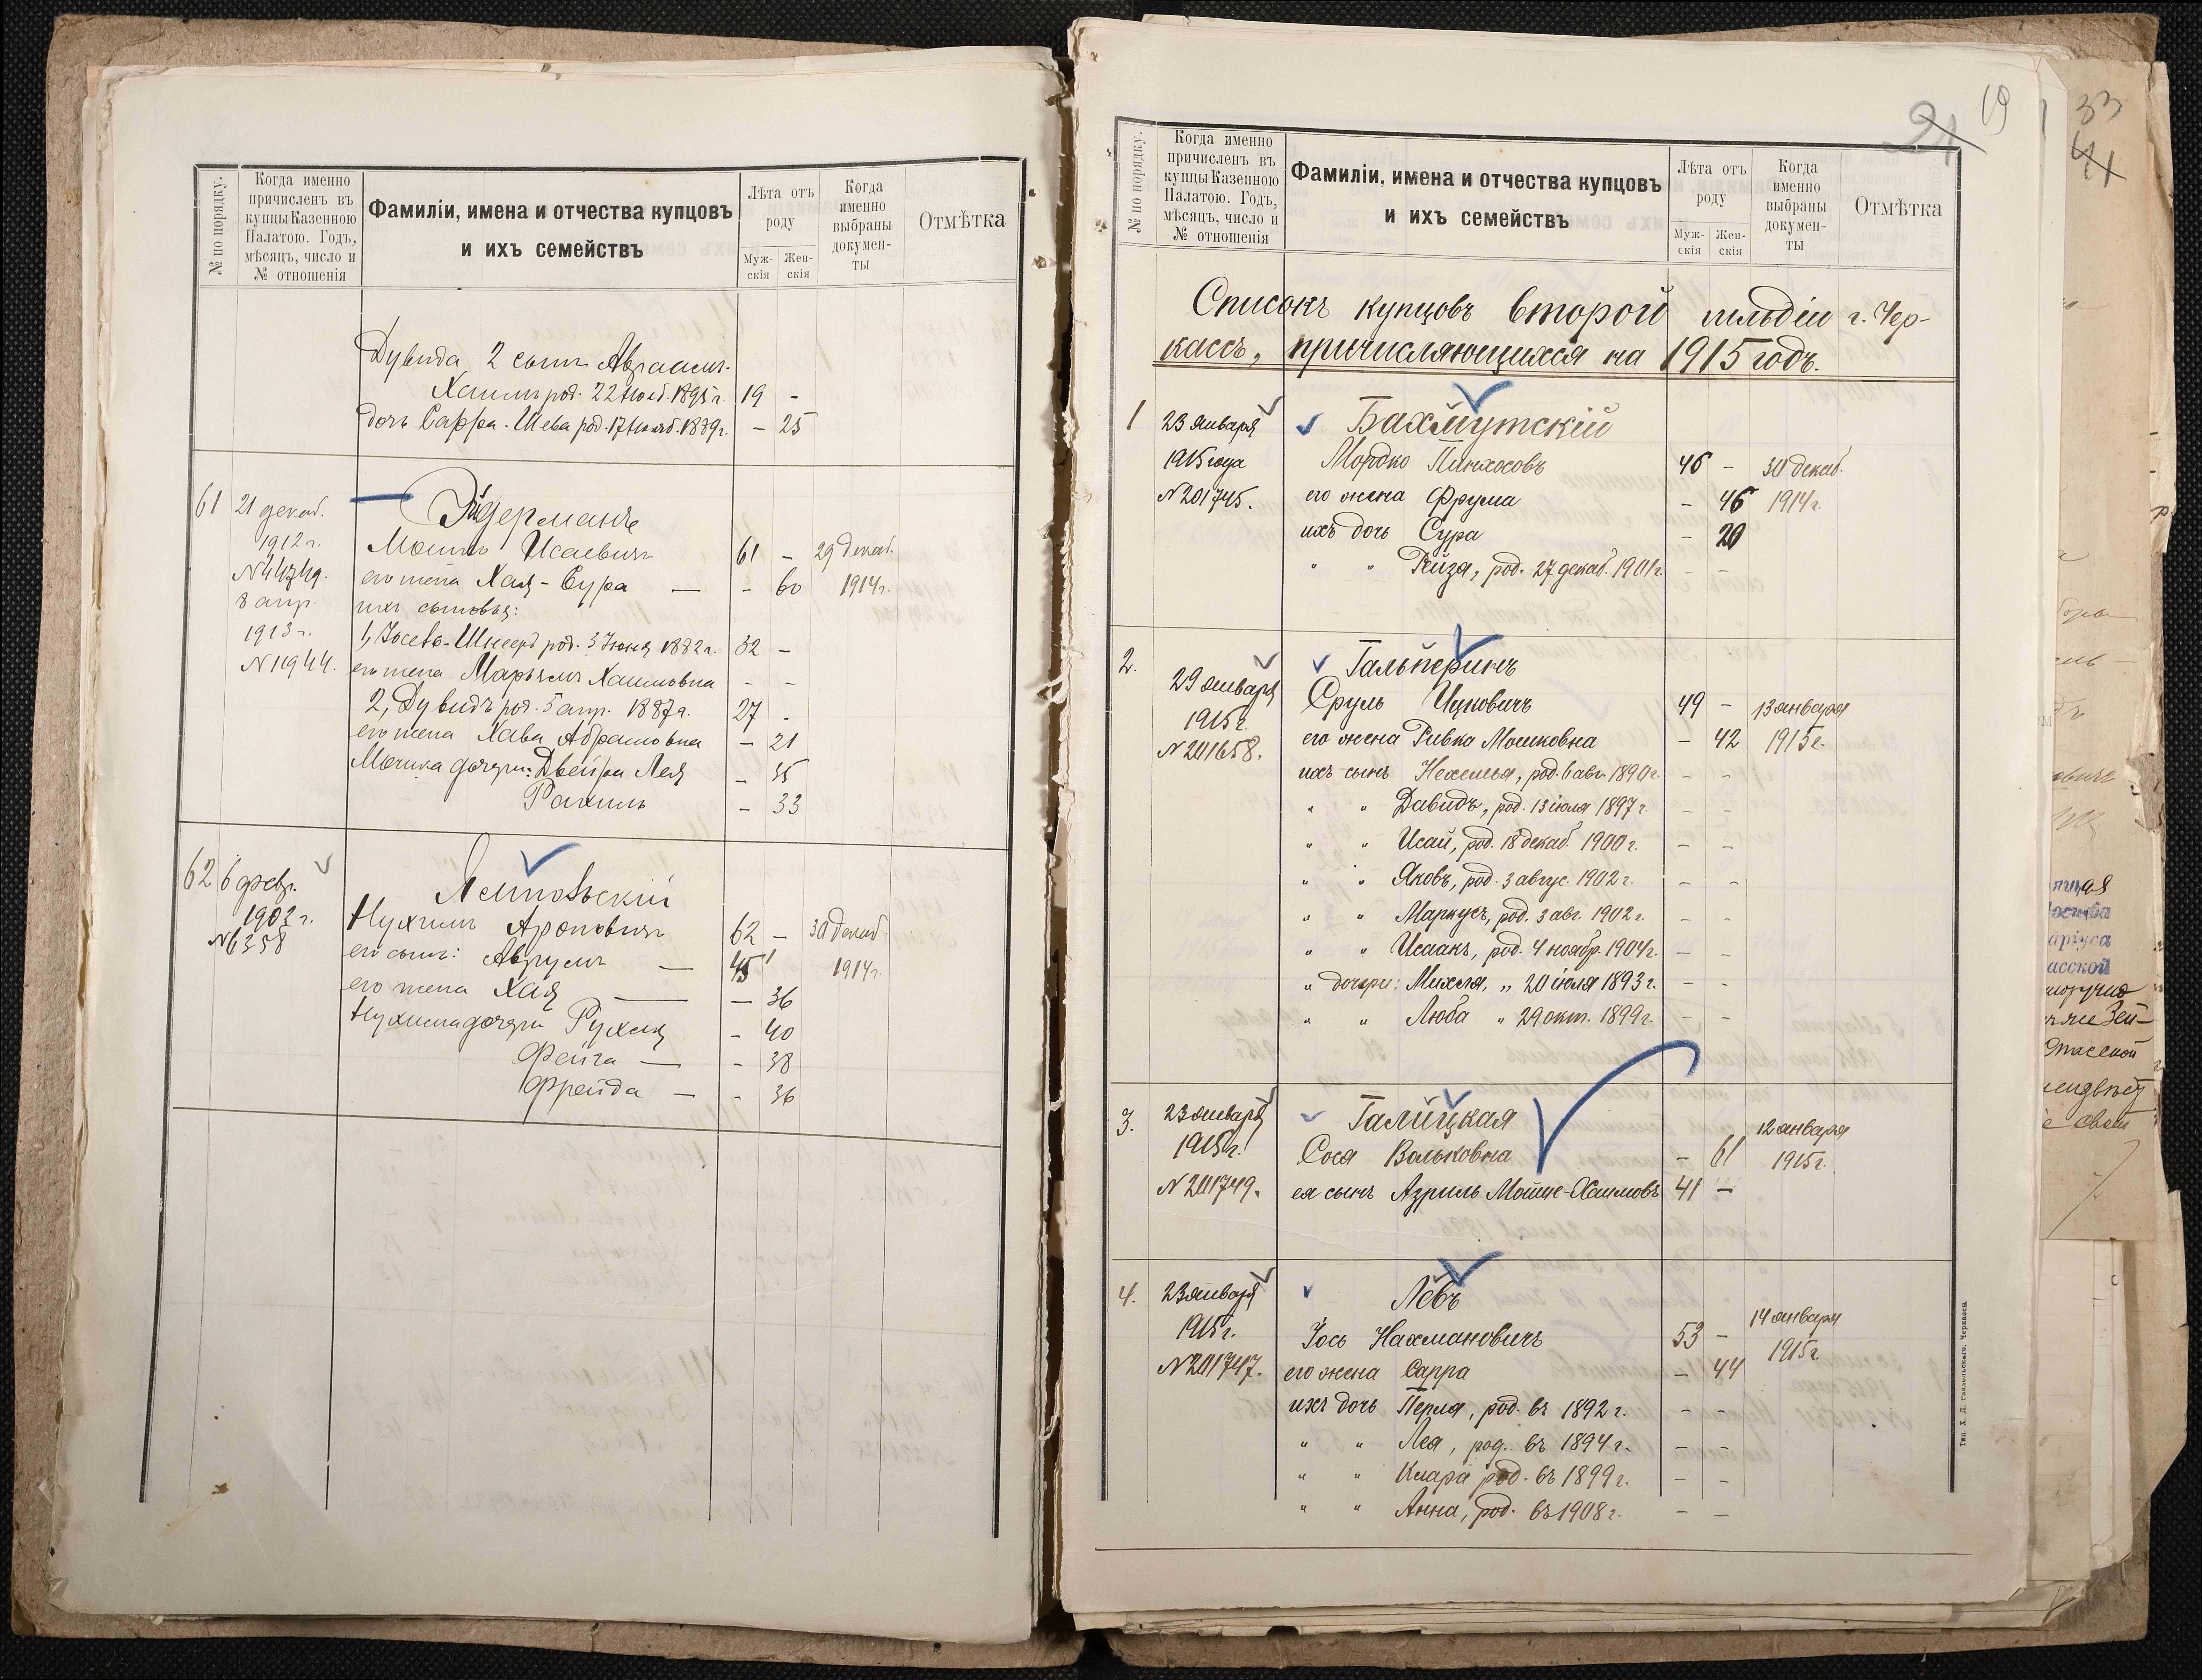 № по порядку.
Когда именно
причисленъ въ
купцы Казенною
Палатою. Годъ,
мѣсяцъ, число и
№ отношенія
Фамиліи, имена и отчества купцовъ
и ихъ семействъ
Лѣта отъ
роду
Муж-
скія
Жен-
скія
Когда
именно
выбраны
докумен-
ты
Отмѣтка
Дувида 2 сынъ Авраамъ-
Хаимъ род. 22 Нояб. 1895 г. 19 -
дочь Сарра-Шева род. 17 Нояб. 1889 г. - 25
61 21 декаб. Эйдерманъ
1912 г. Мошко Исаевичъ 61 - 29 декаб.
его жена Хая-Сура - 60 1914 г.
8 апр. ихъ сыновья:
1913 г. 1, Іосевъ-Шнеер род. 3 Іюня 1882 г. 32 -
N 11944. его жена Марьямъ Хаимовна - -
2, Дувидъ род. 5 апр. 1887 г. 27 -
его жена Хава Абрамовна - 21
Мошка дочери: Двейра Лея - 35
Рахиль - 33
62 6 февр.
1902 г. Нухимъ Ароновичъ 62 - 30 декаб.
N 6358 его сынъ: Аврумъ — 45 1914 г.
его жена Хая — - 36
Нухима дочери Рухля - 40
Фейга — - 38
Фрейда — - 36
19
21
33
41
№ по порядку.
Когда именно
причисленъ въ
купцы Казенною
Палатою. Годъ,
мѣсяцъ, число и
№ отношенія
Фамиліи, имена и отчества купцовъ
и ихъ семействъ
Лѣта отъ
роду
Муж-
скія
Жен-
скія
Когда
именно
выбраны
докумен-
ты
Отмѣтка
Списокъ купцовъ второй гильдіи г. Чер-
кассъ, причисляющихся на 1915 годъ.
1 23 января Бахмутскій
1915 года Мордко Пинхосовъ 46 - 30 декаб.
N 201745. его жена Фрума - 46 1914 г.
ихъ дочь Сура - 20
" " Рейза, род. 27 декаб. 1901 г. - -
2. Гальперинъ
29 января Сруль Ицковичъ 49 - 13 января
1915 г. его жена Ривка Мошковна - 42 1915 г.
N 201658. ихъ сынъ Нехемья, род. 6 авг. 1890 г. - -
" " Давидъ, род. 13 іюля 1897 г. - -
" " Исай, род. 18 декаб. 1900 г. - -
" " Яковъ, род. 3 авгус. 1902 г. - -
" " Маркусъ, род. 3 авг. 1902 г. - -
" " Исаакъ, род. 4 ноябр. 1904 г. - -
" дочери: Михля, " 20 іюля 1893 г. - -
" " Люба " 29 окт. 1899 г. - -
3. 23 января Галицкая 12 января
1915 г. Сося Вольковна - 61 1915 г.
N 201749. ея сынъ Азриль Мошке-Хаимовъ 41 -
4. 23 января Левъ 14 января
1915 г. Іось Нахмановичъ 53 - 1915 г.
N 201747. его жена Сарра - 44
ихъ дочь Перля, род. въ 1892 г. - -
" " Лея, род. въ 1894 г. - -
" " Клара род. въ 1899 г. - -
" " Анна, род. въ 1908 г. - -